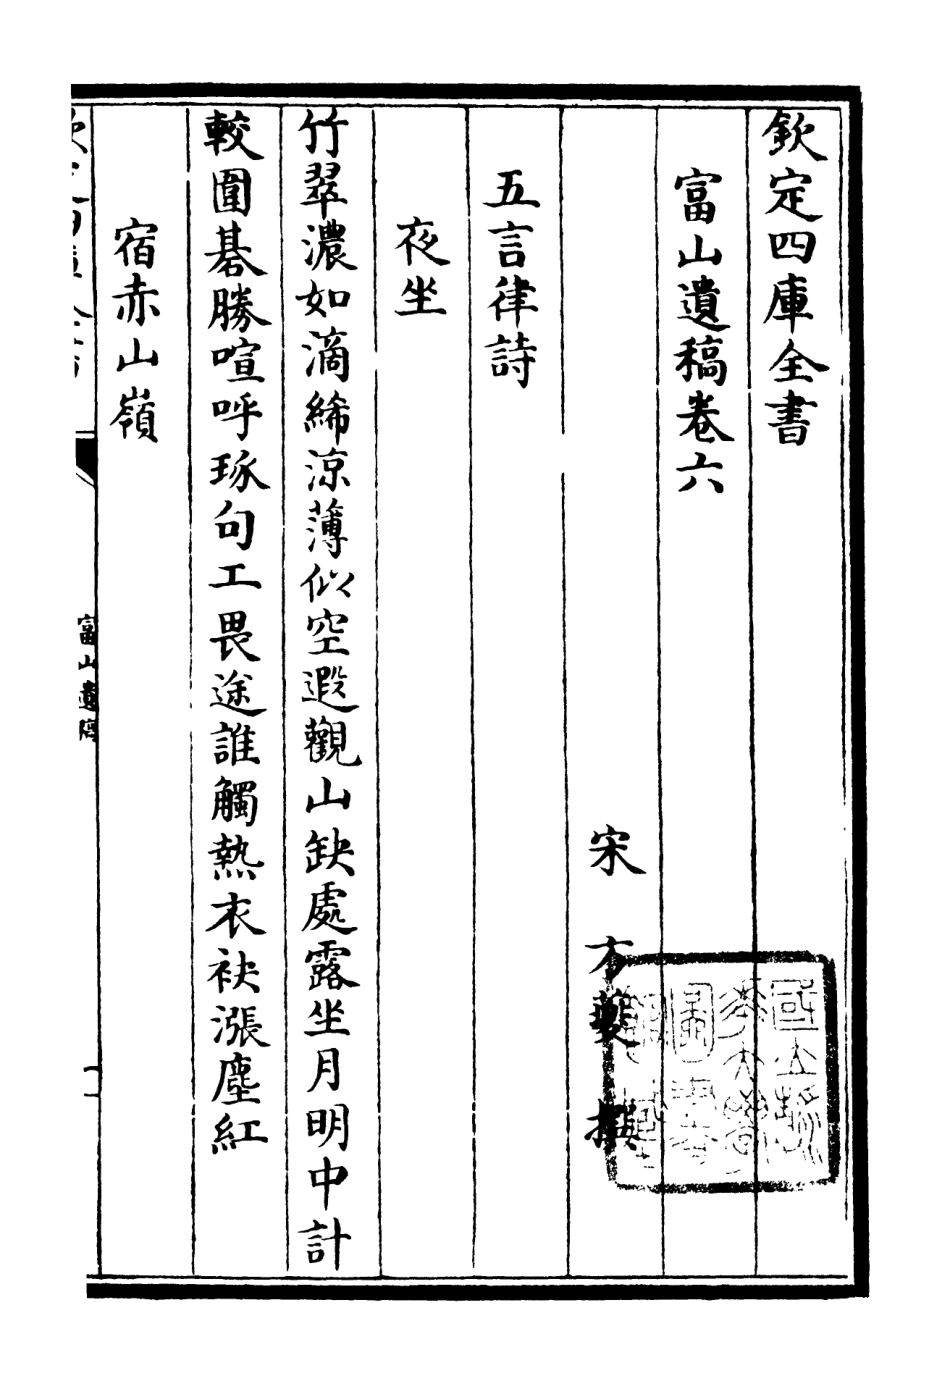 欽定四庫全書
富山遺稿卷六
宋 方夔 撰
五言律詩
夜坐
竹翠濃如滴絺涼薄似空遐觀山缺處露坐月明中計
較圍碁勝喧呼琢句工畏途誰觸熱衣袂漲塵紅
宿赤山嶺
富山遺稿